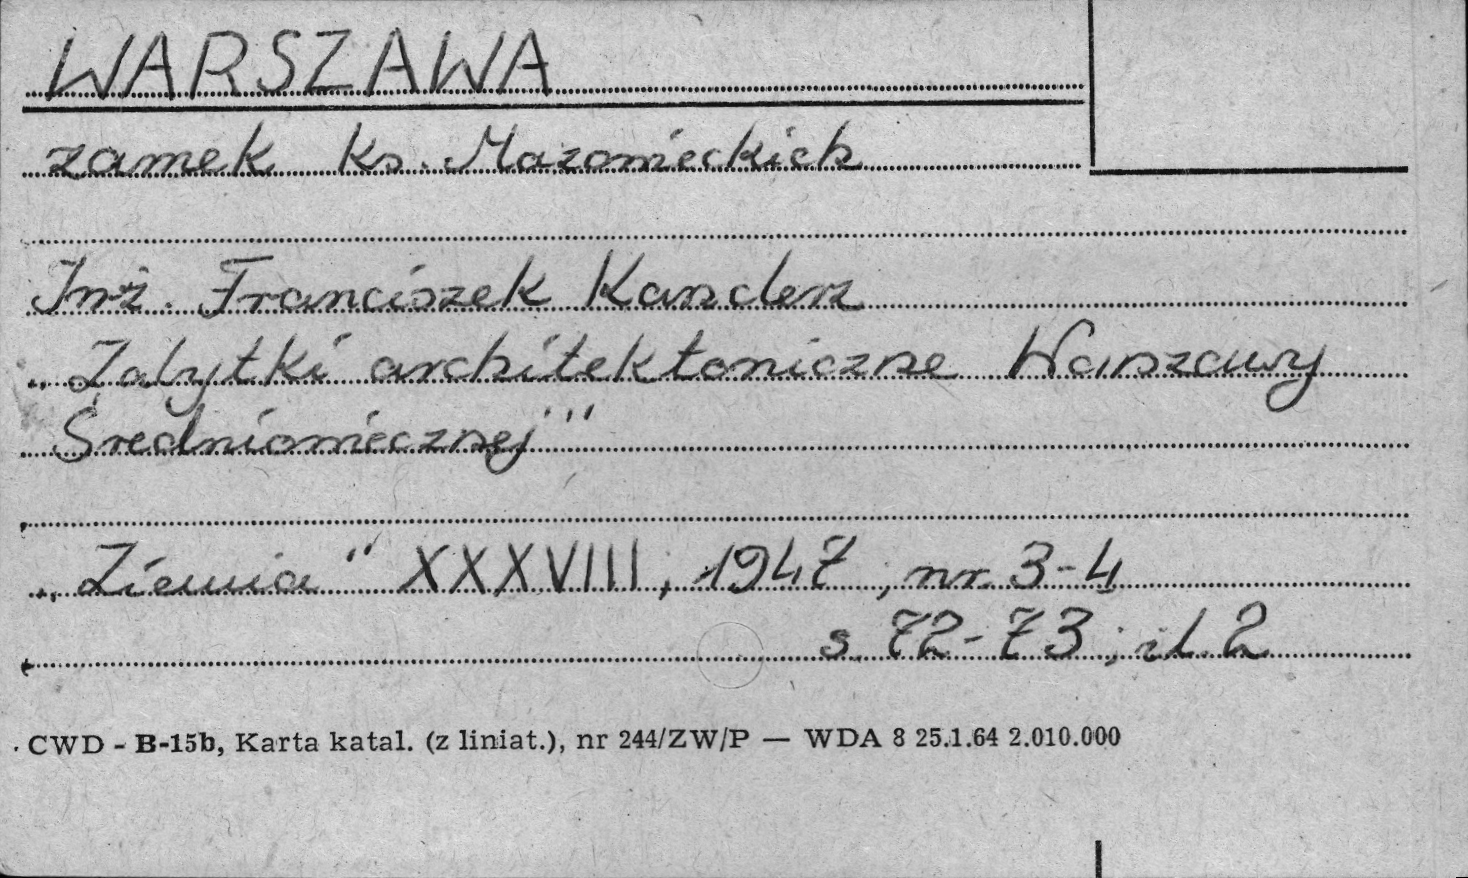 WARSZAWA
zamek ks. Mazowieckich
Inż. Franciszek Kanclerz
„Zabytki architektoniczne Warszawy
Średniowiecznej"
„Ziemia" XXXVIII, 1947, nr 3-4
s. 72-73; il. 2
CWD - B-15b, Karta katal. (z liniat.), nr 244/ZW/P — WDA 8 25.1.64 2.010.000